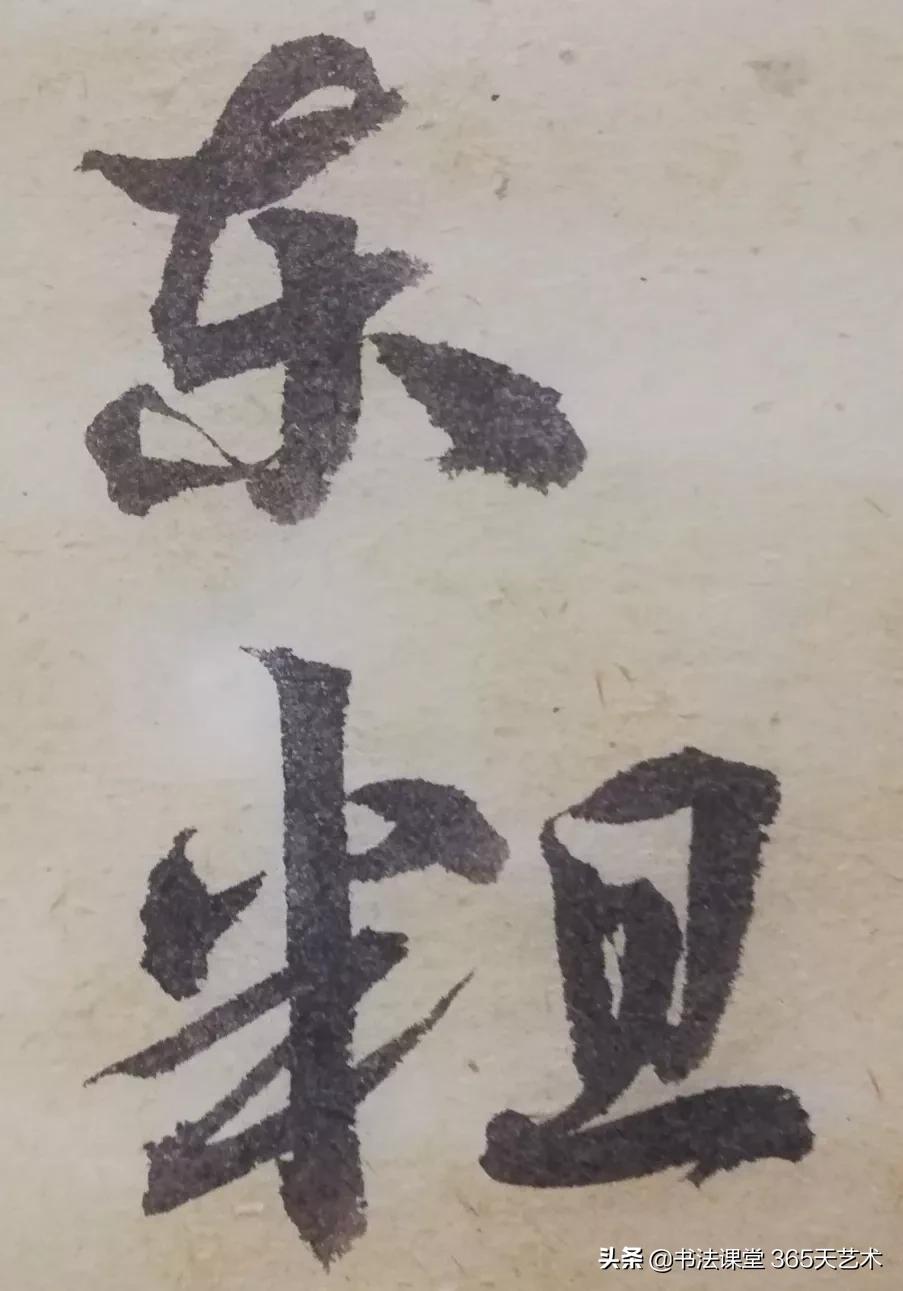 东
粗
头条 @书法课堂 365天艺术